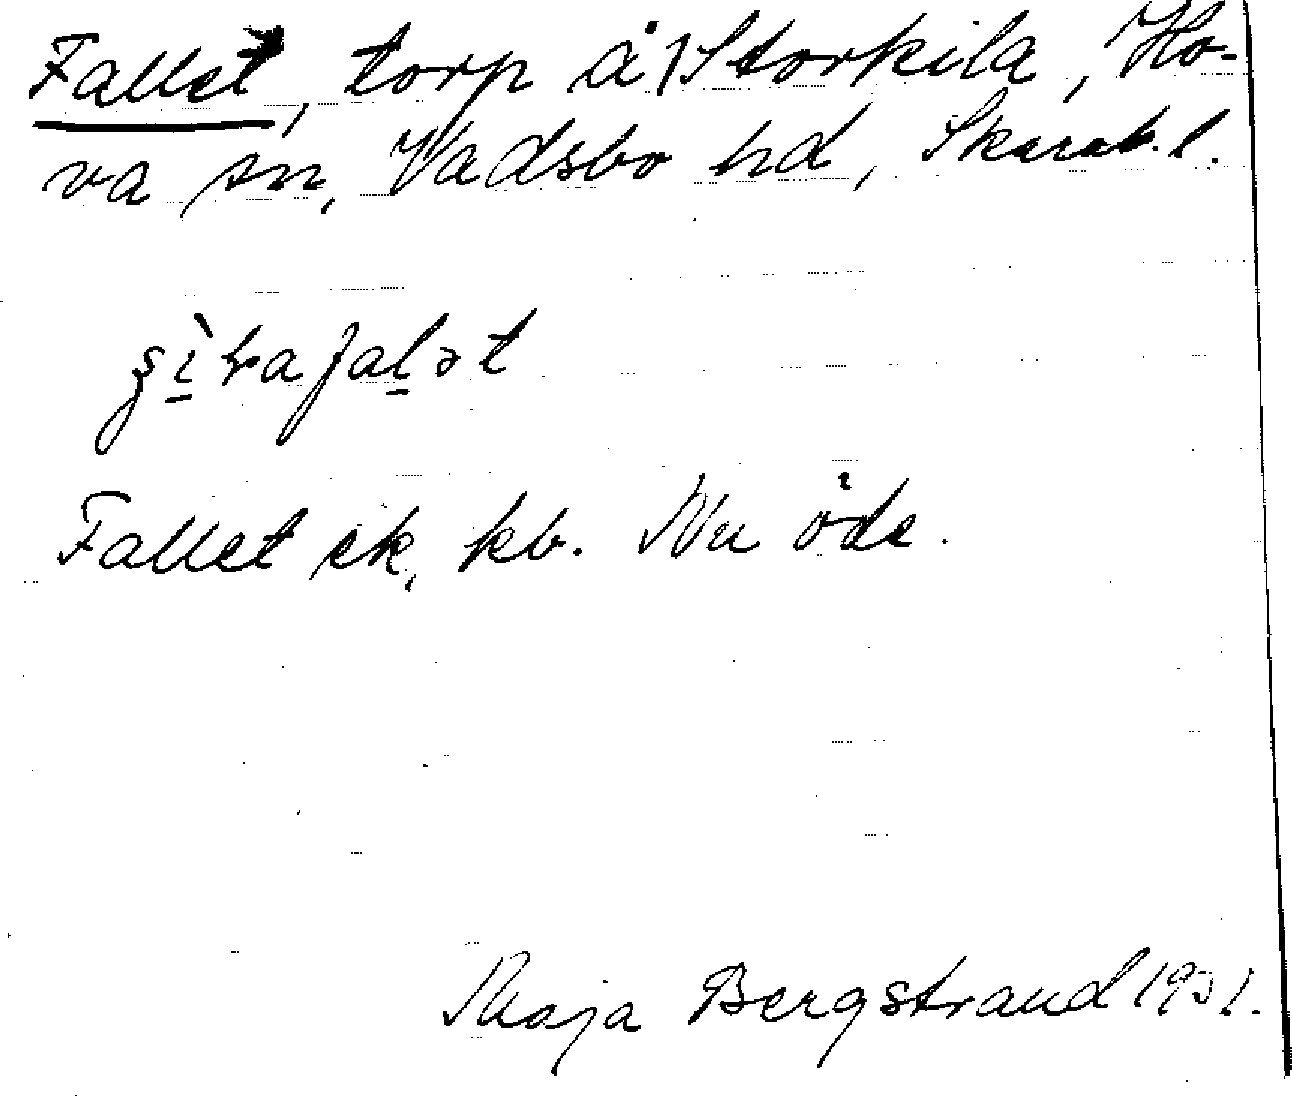 Fallet, torp å Storkila, Ho-
va sn, Vadsbo hd, Skarab. l.
Fallet ek. kb. Nu öde.
Maja Bergstrand 1931.